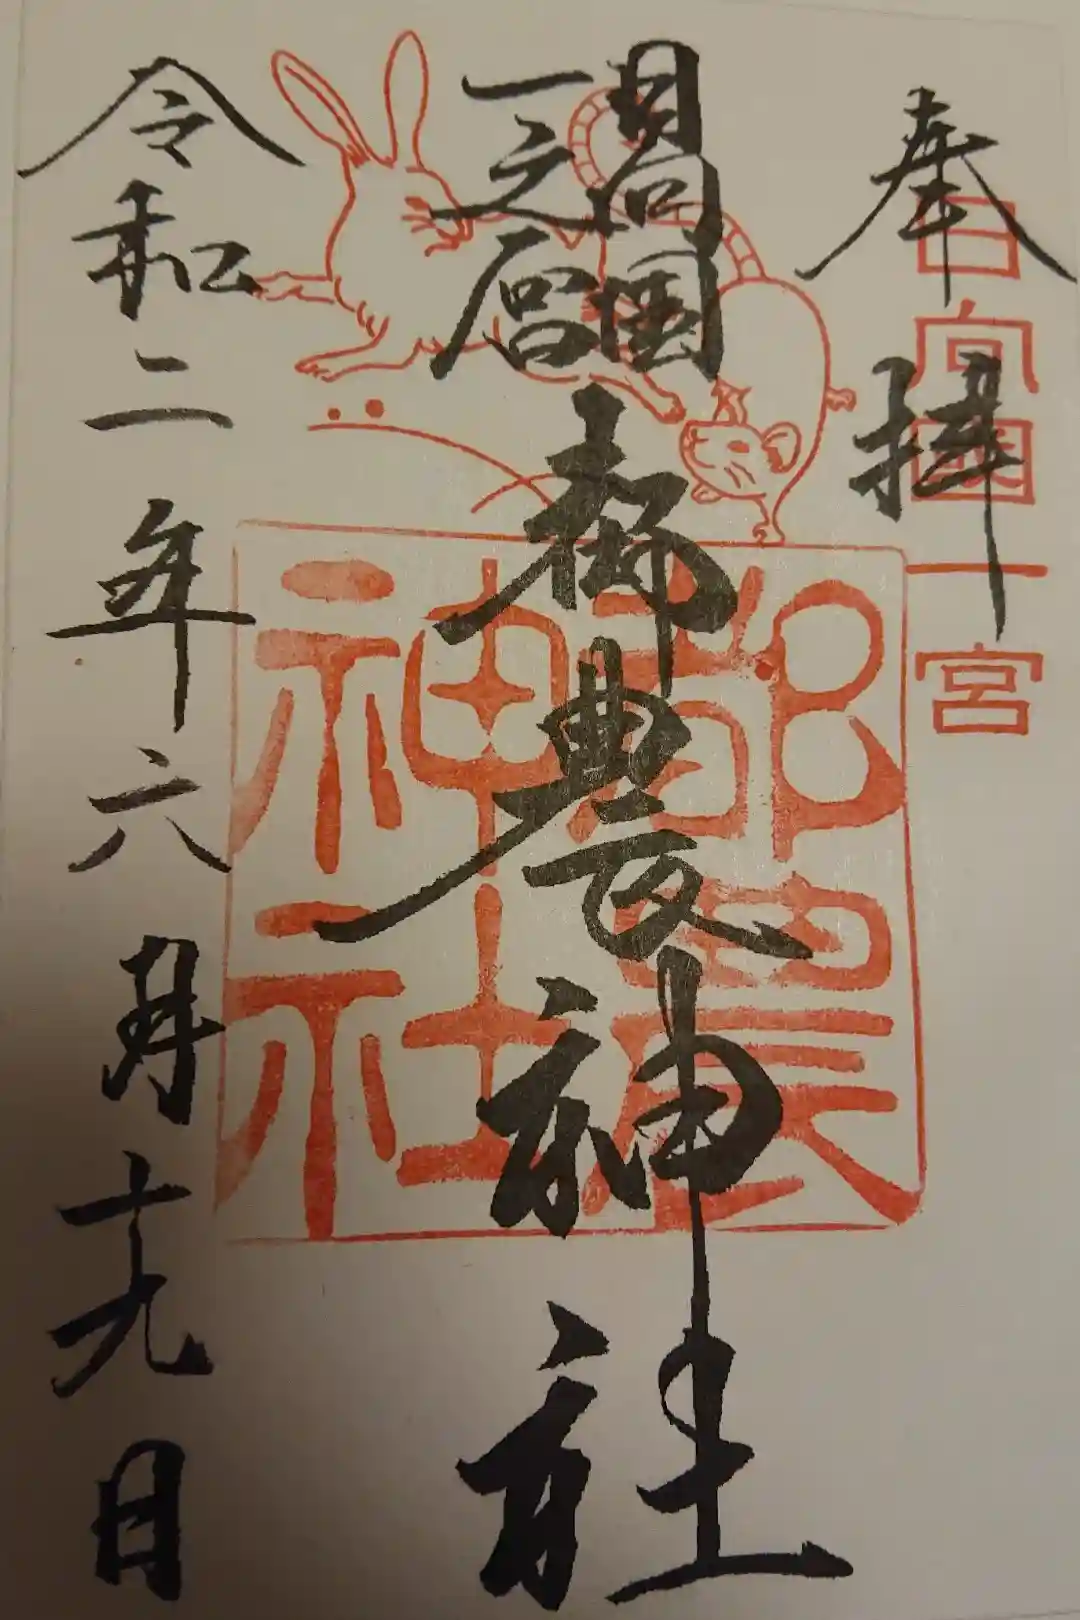 奉拝
日向國一宮
日向国
一之宮
都農神社
都農神社
令和二年六月十九日